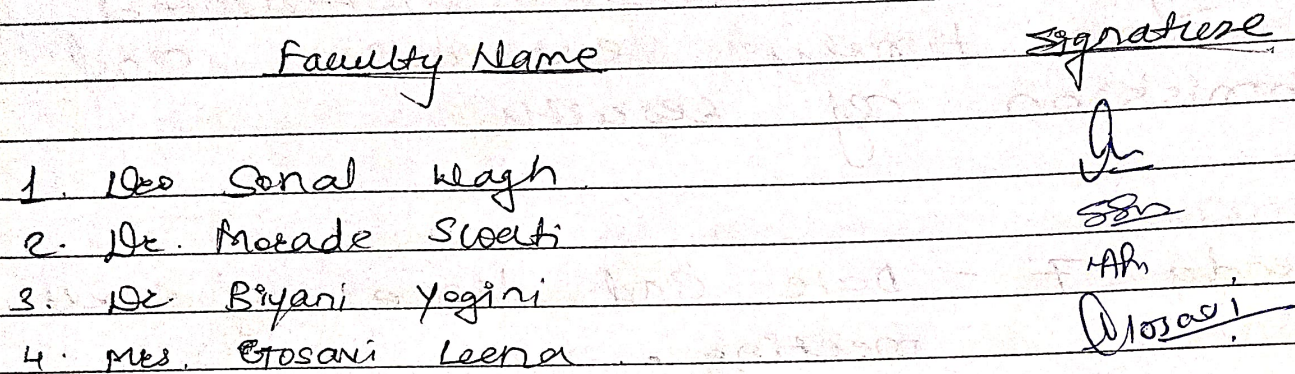 Faculty Name Signature
1. Dr Sonal Wagh
2. Dr. Morade Swati
3. Dr Biyani Yogini
4. Mrs. Gosavi Leena Gosavi